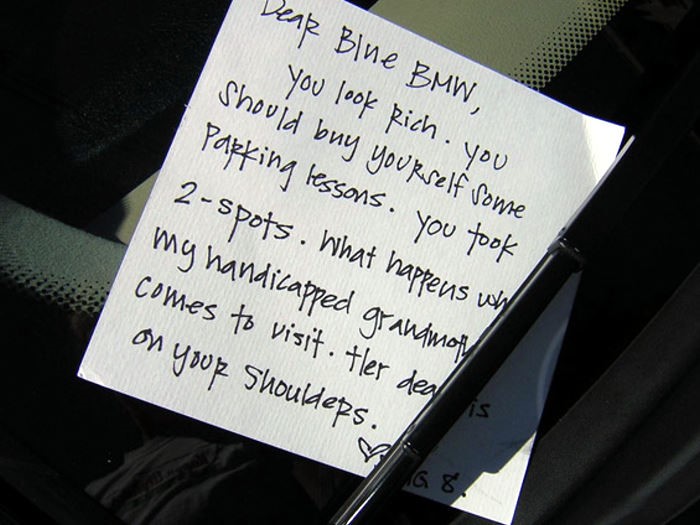 Dear Blue BMW,
you look Rich. you
should buy yourself some
parking lessons. you took
2-spots. What happens wh
my handicapped grandmoth
comes to visit. Her dea is
on your shoulders.
G 8.